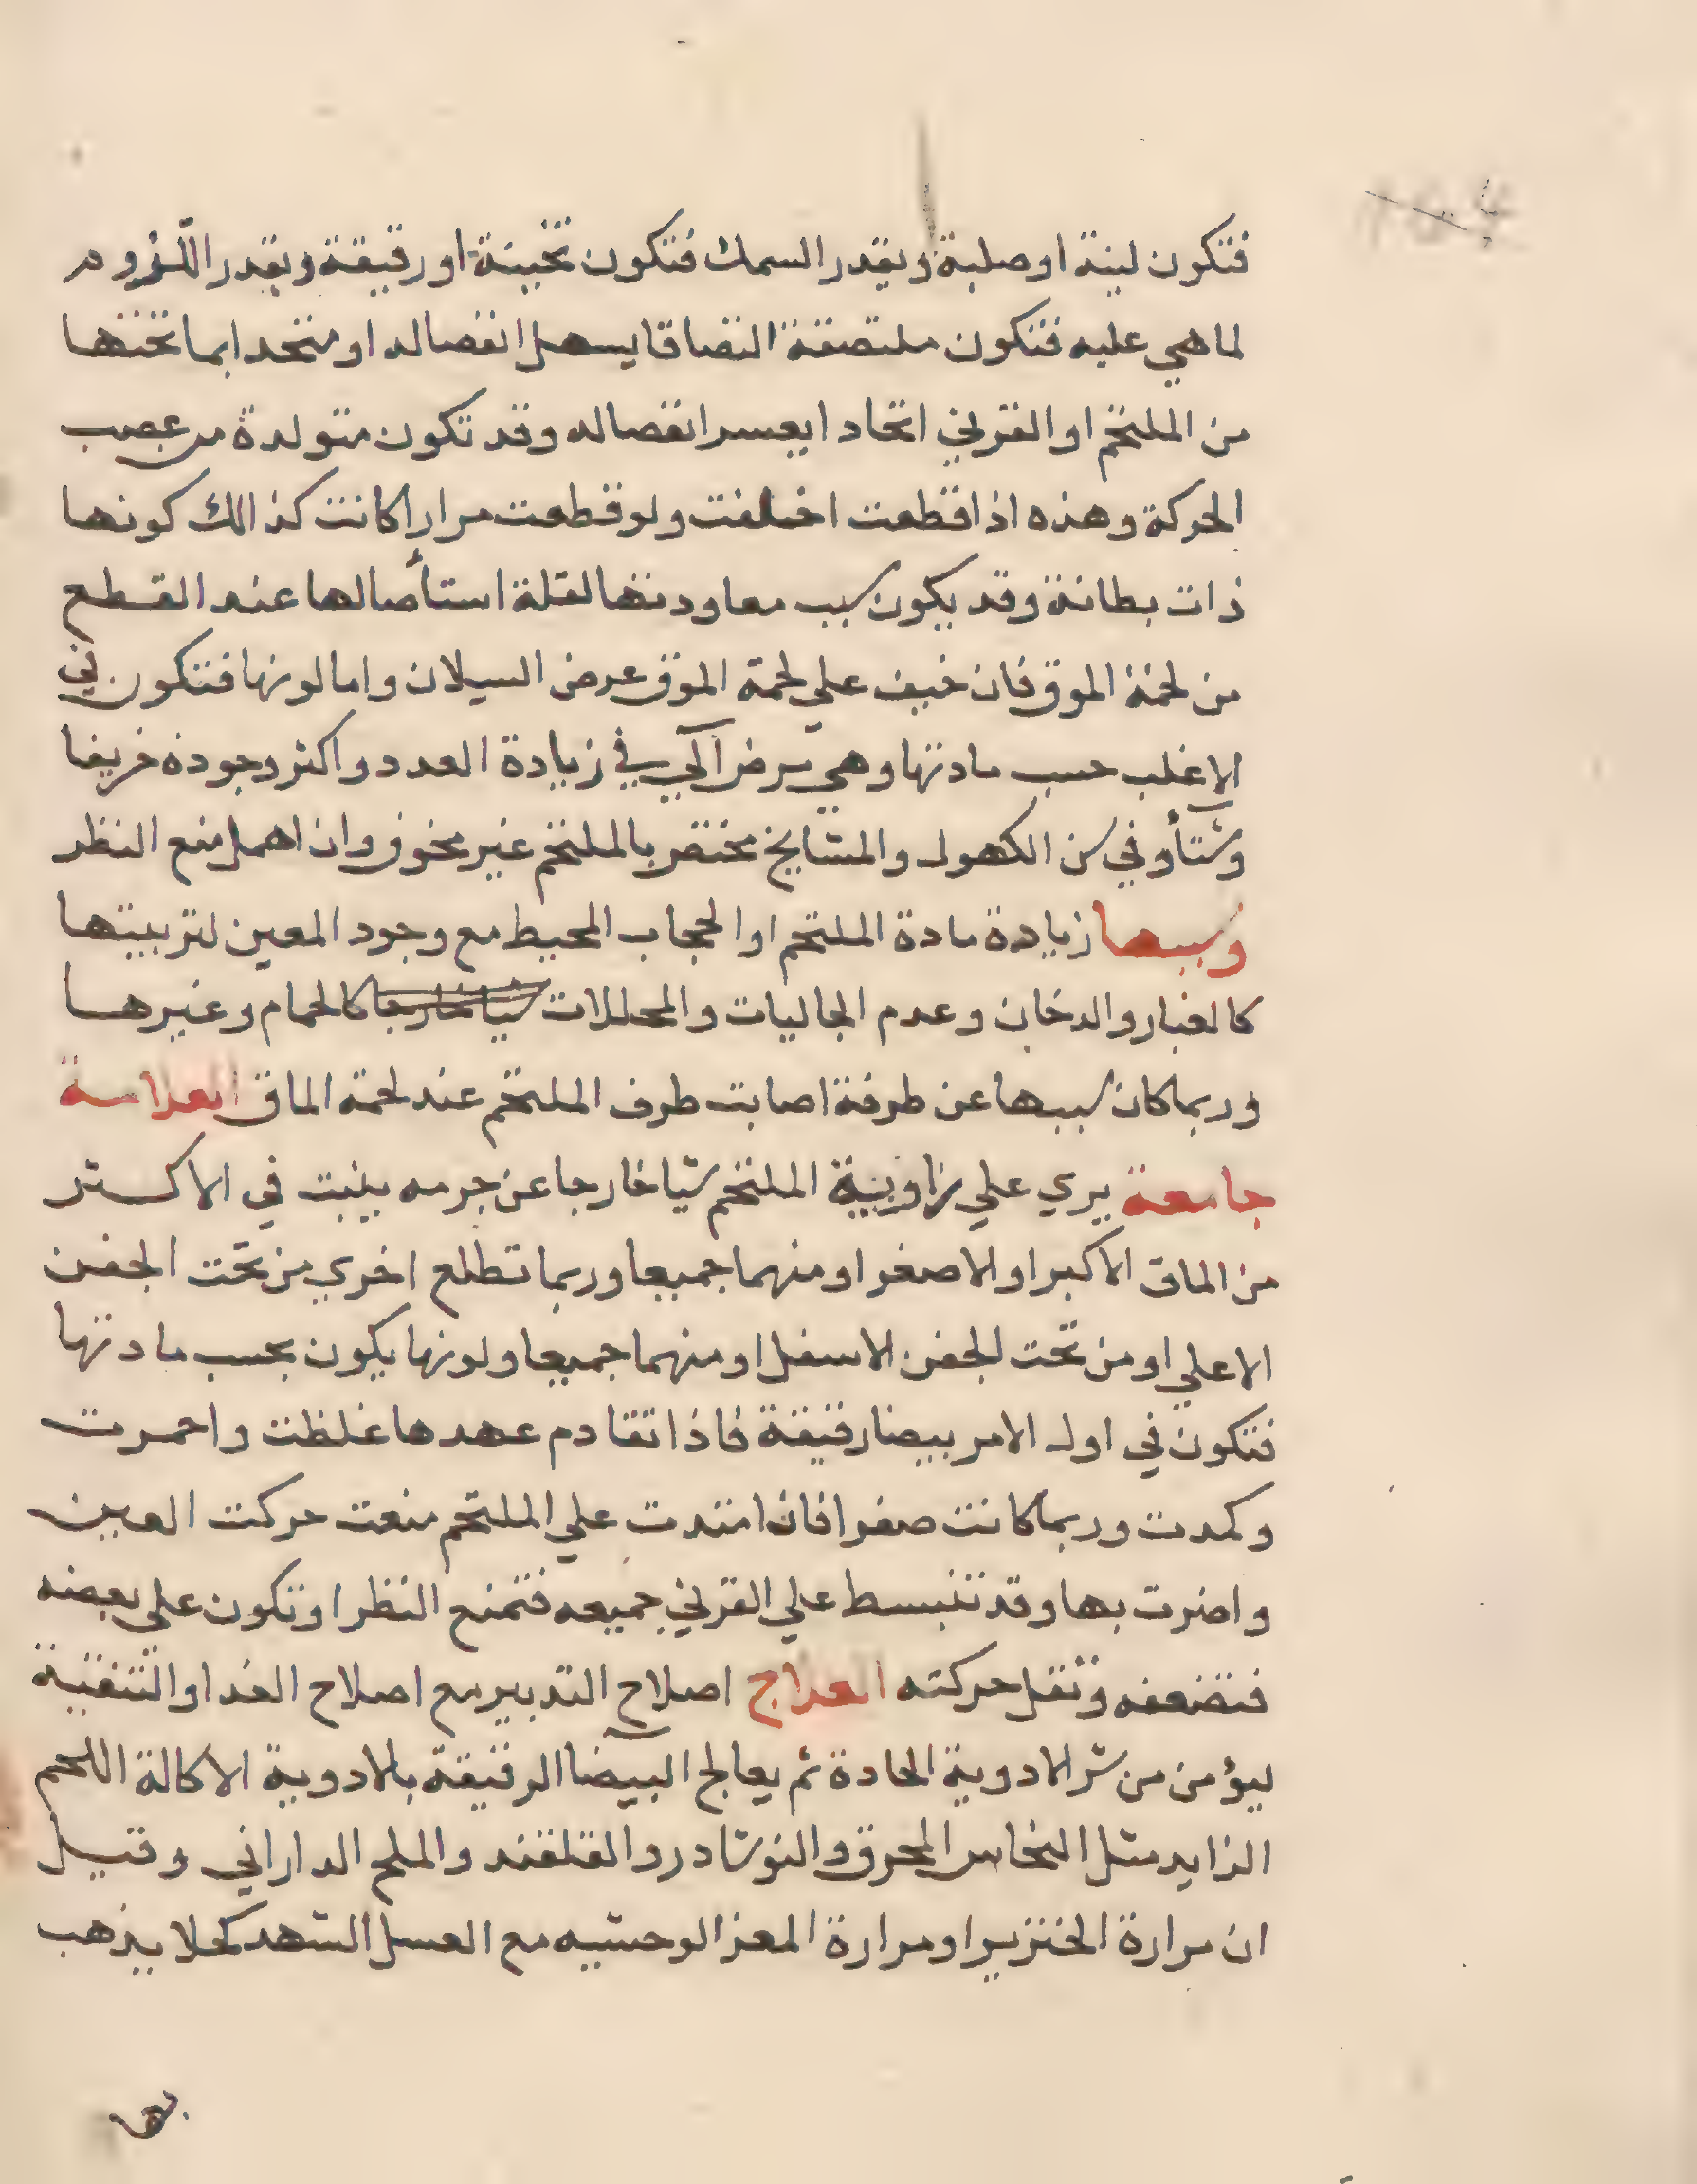 فتكون لينة او صلبة وبقدر السمك فتكون ثخينة او رقيقة وبقدر اللزوم
لما هي عليه فتكون ملتصقة التصاقا يسهل انفصاله او متحدا بما تحتها
من الملتحم او القرني اتحادا يعسر انفصاله وقد تكون متولدة من عصب
الحركة وهذه اذا قطعت اختلفت ولو قطعت مرارا كانت كذالك كونها
ذات بطانة وقد يكون سبب معاودتها لقلة استأصالها عند القطع
من لحمة الموق فان خيف علي لحمة الموق عرض السيلان واما لونها فتكون في
الاغلب حسب مادتها وهي مرض آلي في زيادة العدد واكثر وجوده خريفا
وشتأ وفي سن الكهول والمشايخ مختص بالملتحم غير مخوف وان اهمل منع النظر
وسببها زيادة مادة الملتحم او الحجاب المحيط مع وجود المعين لتربيتها
كالغبار والدخان وعدم الجاليات والمحللات شيا خارجا كالحمام وغيرها
وربما كان سببها عن طرفة اصابت طرف الملتحم عند لحمة الماق العلامة
جامعة يري علي زاوية الملتحم شيا خارجا عن جرمه ينبت في الاكتر
من الماق الاكبر او الاصغر او منهما جميعا وربما تطلع اخري من تحت الجفن
الاعلي او من تحت الجفن الاسفل او منهما جميعا ولونها يكون بحسب مادتها
فتكون في اول الامر بيضا رقيقة فاذا تقادم عهدها غلظت واحمرت
وكمدت وربما كانت صفرا فان امتدت علي الملتحم منعت حركت العين
واضرت بها وقد تنبسط علي القرني جميعه فتمنع النظر او تكون علي بعضه
فتضعفه وتثقل حركته العلاج اصلاح التدبير مع اصلاح الغدا والتنقية
ليؤمن من شر الادوية الحادة ثم يعالج البيضا الرقيقة بالادوية الاكالة اللحم
الزايد مثل النحاس المحرق والنوشادر والقلقند والملح الداراني وقيل
ان مرارة الخنزير او مرارة المعز الوحشيه مع العسل الشهد كحلا يذهب